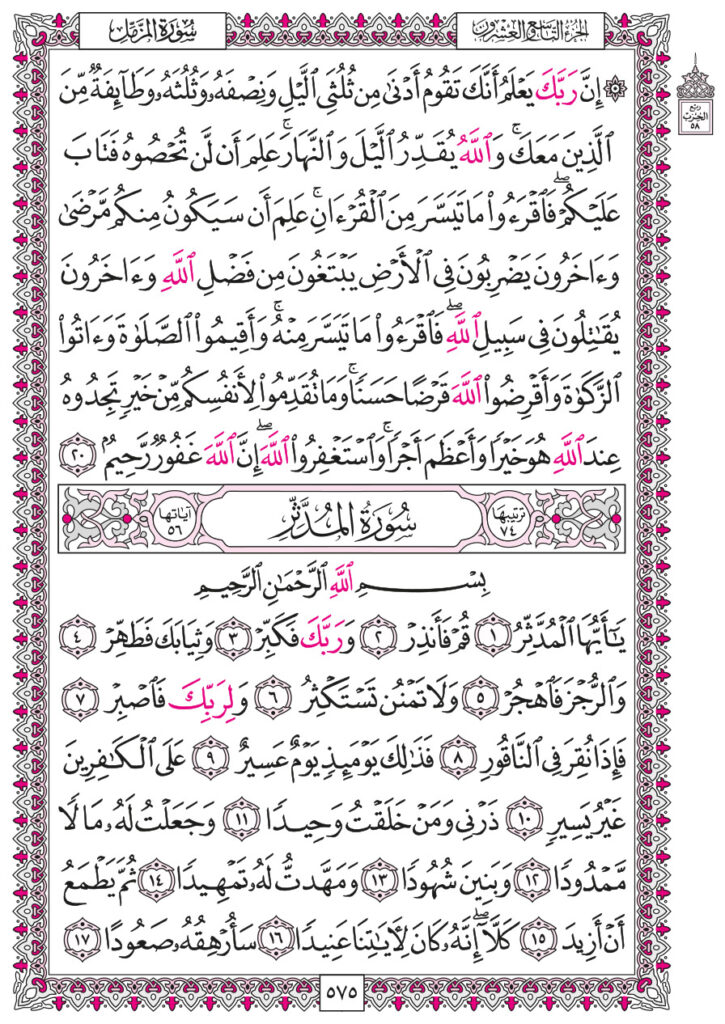 الجزء التاسع والعشرون
سورة المزمل
ربع
الحزب
٥٨
۞ إِنَّ رَبَّكَ يَعْلَمُ أَنَّكَ تَقُومُ أَدْنَىٰ مِن ثُلُثَيِ ٱلَّيْلِ وَنِصْفَهُۥ وَثُلُثَهُۥ وَطَآئِفَةٌ مِّنَ
ٱلَّذِينَ مَعَكَ ۚ وَٱللَّهُ يُقَدِّرُ ٱلَّيْلَ وَٱلنَّهَارَ ۚ عَلِمَ أَن لَّن تُحْصُوهُ فَتَابَ
عَلَيْكُمْ ۖ فَٱقْرَءُوا۟ مَا تَيَسَّرَ مِنَ ٱلْقُرْءَانِ ۚ عَلِمَ أَن سَيَكُونُ مِنكُم مَّرْضَىٰ
وَءَاخَرُونَ يَضْرِبُونَ فِى ٱلْأَرْضِ يَبْتَغُونَ مِن فَضْلِ ٱللَّهِ وَءَاخَرُونَ
يُقَٰتِلُونَ فِى سَبِيلِ ٱللَّهِ ۖ فَٱقْرَءُوا۟ مَا تَيَسَّرَ مِنْهُ ۚ وَأَقِيمُوا۟ ٱلصَّلَوٰةَ وَءَاتُوا۟
ٱلزَّكَوٰةَ وَأَقْرِضُوا۟ ٱللَّهَ قَرْضًا حَسَنًا ۚ وَمَا تُقَدِّمُوا۟ لِأَنفُسِكُم مِّنْ خَيْرٍ تَجِدُوهُ
عِندَ ٱللَّهِ هُوَ خَيْرًا وَأَعْظَمَ أَجْرًا ۚ وَٱسْتَغْفِرُوا۟ ٱللَّهَ ۖ إِنَّ ٱللَّهَ غَفُورٌ رَّحِيمٌۢ ٢٠
ترتيبها ٧٤ سُورَةُ المُدَّثِّرِ آياتها ٥٦
بِسْمِ ٱللَّهِ ٱلرَّحْمَٰنِ ٱلرَّحِيمِ
يَٰٓأَيُّهَا ٱلْمُدَّثِّرُ ١ قُمْ فَأَنذِرْ ٢ وَرَبَّكَ فَكَبِّرْ ٣ وَثِيَابَكَ فَطَهِّرْ ٤
وَٱلرُّجْزَ فَٱهْجُرْ ٥ وَلَا تَمْنُن تَسْتَكْثِرُ ٦ وَلِرَبِّكَ فَٱصْبِرْ ٧
فَإِذَا نُقِرَ فِى ٱلنَّاقُورِ ٨ فَذَٰلِكَ يَوْمَئِذٍ يَوْمٌ عَسِيرٌ ٩ عَلَى ٱلْكَٰفِرِينَ
غَيْرُ يَسِيرٍ ١٠ ذَرْنِى وَمَنْ خَلَقْتُ وَحِيدًا ١١ وَجَعَلْتُ لَهُۥ مَالًا
مَّمْدُودًا ١٢ وَبَنِينَ شُهُودًا ١٣ وَمَهَّدتُّ لَهُۥ تَمْهِيدًا ١٤ ثُمَّ يَطْمَعُ
أَنْ أَزِيدَ ١٥ كَلَّآ ۖ إِنَّهُۥ كَانَ لِءَايَٰتِنَا عَنِيدًا ١٦ سَأُرْهِقُهُۥ صَعُودًا ١٧
٥٧٥